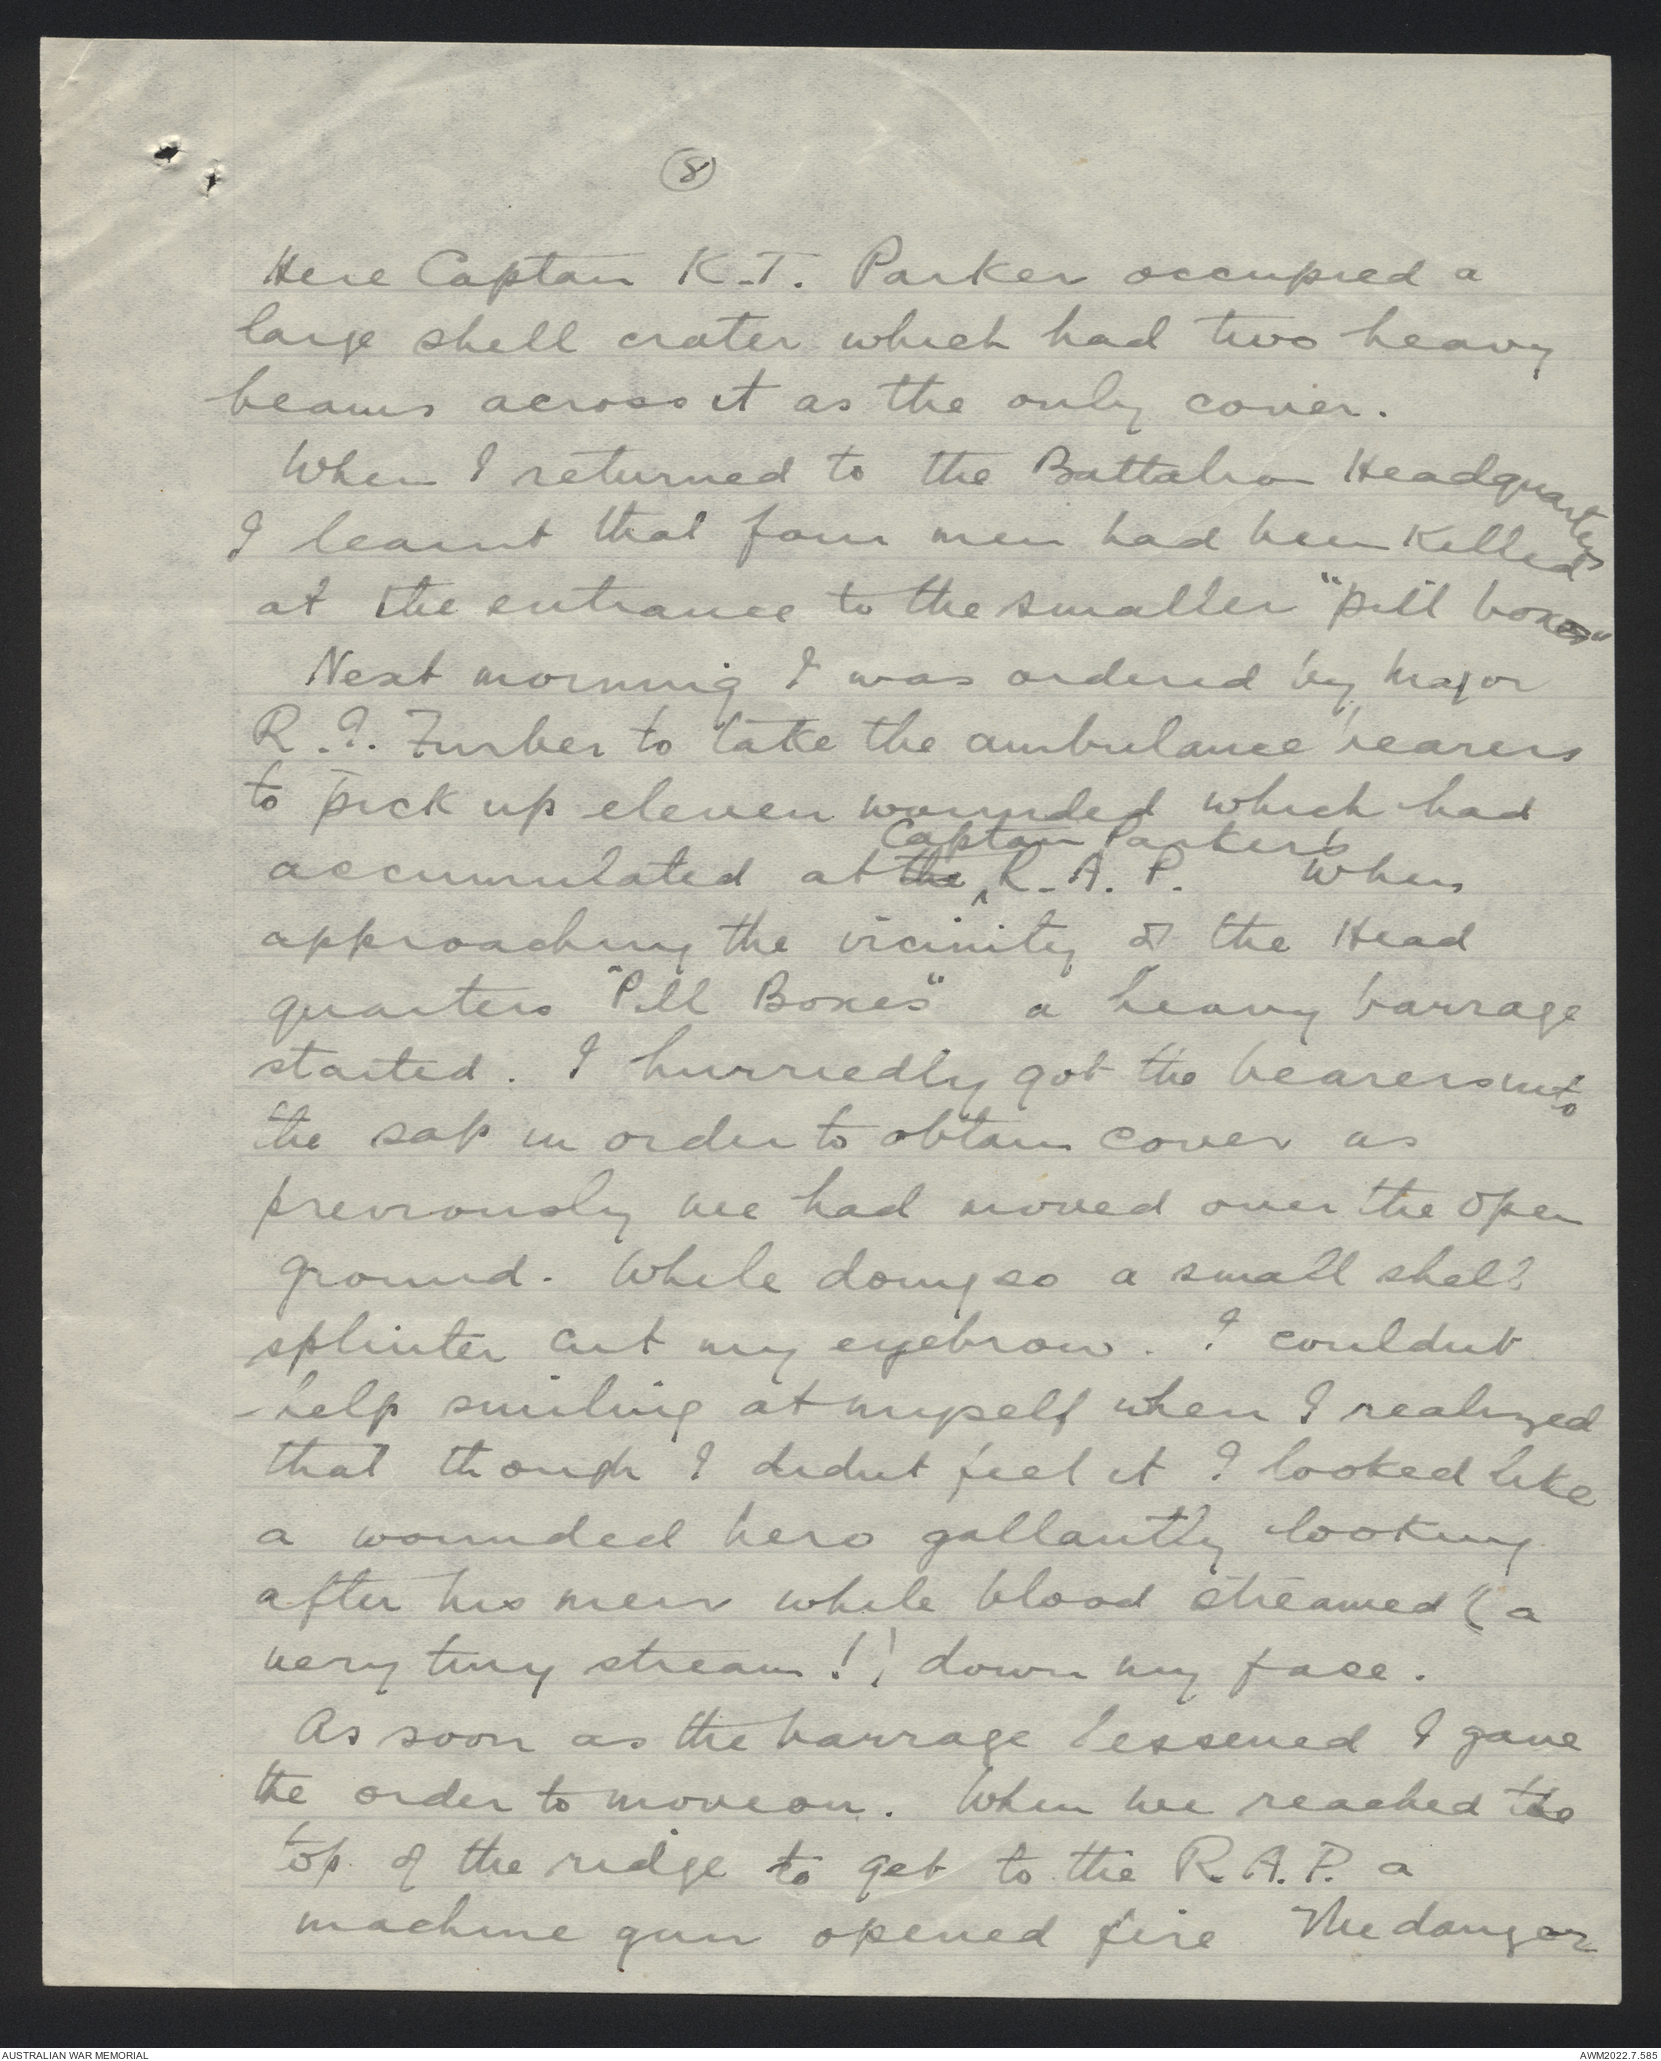 8
Here Captain K.T. Parker occupied a
large shell crater which had two heavy
beams across it as the only cover.
When I returned to the Battalion Headquarters
I learnt that four men had been killed
at the entrance to the smaller "pill boxes"
Next morning I was ordered by Major
R.I. Furber to take the ambulance bearers
to pick up eleven wounded which had
Captain Parker's
accumulated at the R.A.P. When
approaching the vicinity of the Head
quarters "Pill Boxes" a heavy barrage
started. I hurriedly got the bearers into
the sap in order to obtain cover as
previously we had moved over the open
ground. While doing so a small shell
splinter cut my eyebrow. I couldnt
help smiling at myself when I realized
that though I didnt feel it I looked like
a wounded hero gallantly looking
after his men while blood streamed (a
very tiny stream!) down my face.
As soon as the barrage lessened I gave
the order to move on. When we reached the
top of the ridge to get to the R.A.P. a
machine gun opened fire The danger
AUSTRALIAN WAR MEMORIAL
AWM2022.7.585